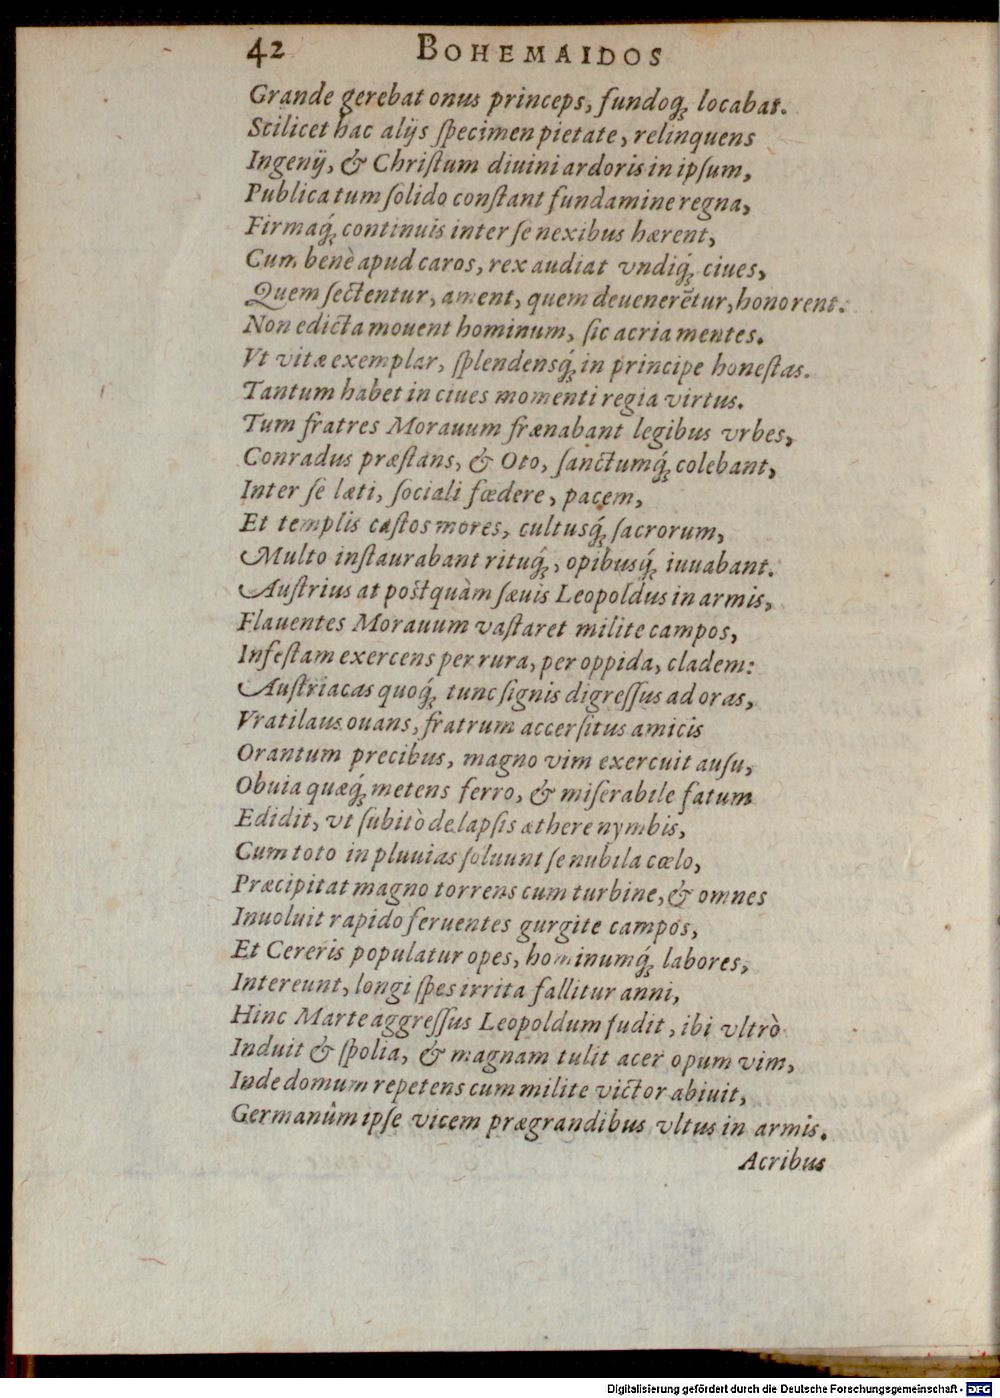 42 BOHEMAIDOS
Grande gerebat onus princeps, fundoq́ꝫ locabat.
Scilicet hac alijs ſpecimen pietate, relinquens
Ingenij, & Chriſtum diuini ardoris in ipſum,
Publica tum ſolido conſtant fundamine regna,
Firmaq́ꝫ continuis inter ſe nexibus hærent,
Cum benè apud caros, rex audiat vndiq́ꝫ ciues,
Quem ſectentur, ament, quem deuenerētur, honorent.
Non edicta mouent hominum, ſic acria mentes.
Vt vitæ exemplar, ſplendensq́ꝫ in principe honeſtas.
Tantum habet in ciues momenti regia virtus.
Tum fratres Morauum frænabant legibus vrbes,
Conradus præſtans, & Oto, ſanctumq́ꝫ colebant,
Inter ſe læti, ſociali fœdere, pacem,
Et templis caſtos mores, cultusq́ꝫ ſacrorum,
Multo inſtaurabant rituq́ꝫ, opibusq́ꝫ iuuabant.
Auſtrius at poſtquàm ſæuis Leopoldus in armis,
Flauentes Morauum vaſtaret milite campos,
Infeſtam exercens per rura, per oppida, cladem:
Auſtriacas quoq́ꝫ tunc ſignis digreſſus ad oras,
Vratilaus ouans, fratrum accerſitus amicis
Orantum precibus, magno vim exercuit auſu,
Obuia quæq́ꝫ metens ferro, & miſerabile fatum
Edidit, vt ſubitò delapſis æthere nymbis,
Cum toto in pluuias ſoluunt ſe nubila cœlo,
Præcipitat magno torrens cum turbine, & omnes
Inuoluit rapido feruentes gurgite campos,
Et Cereris populatur opes, hominumq́ꝫ labores,
Intereunt, longi ſpes irrita fallitur anni,
Hinc Marte aggreſſus Leopoldum fudit, ibi vltrò
Induit & ſpolia, & magnam tulit acer opum vim,
Inde domum repetens cum milite victor abiuit,
Germanûm ipſe vicem prægrandibus vltus in armis.
Acribus
Digitalisierung gefördert durch die Deutsche Forschungsgemeinschaft - DFG